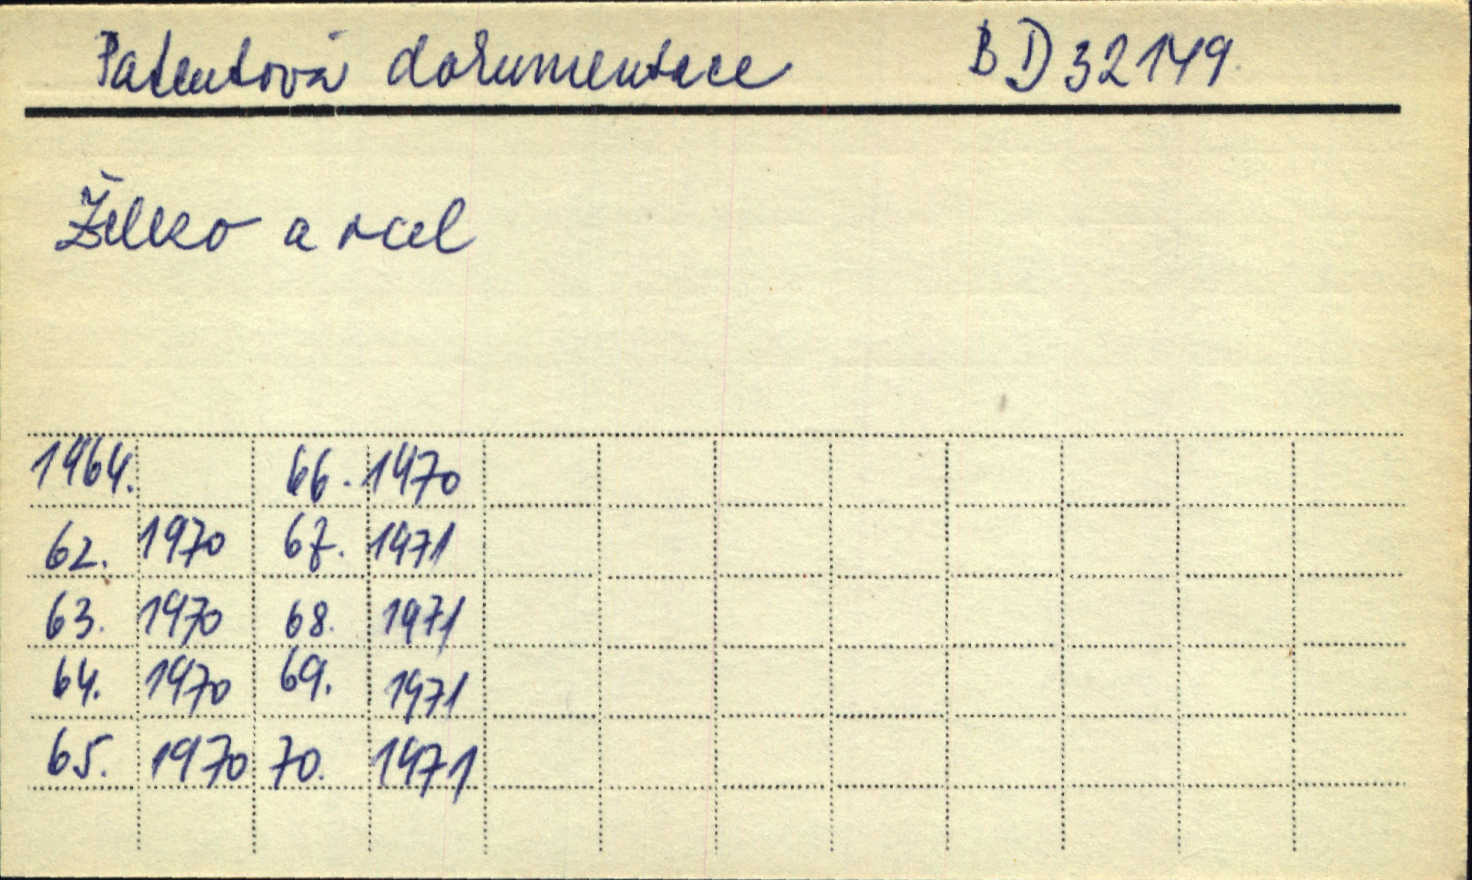 Patentová dokumentace BD 32149
Železo a ocel
1964. 66. 1970
62. 1970 67. 1971
63. 1970 68. 1971
64. 1970 69. 1971
65. 1970 70. 1971